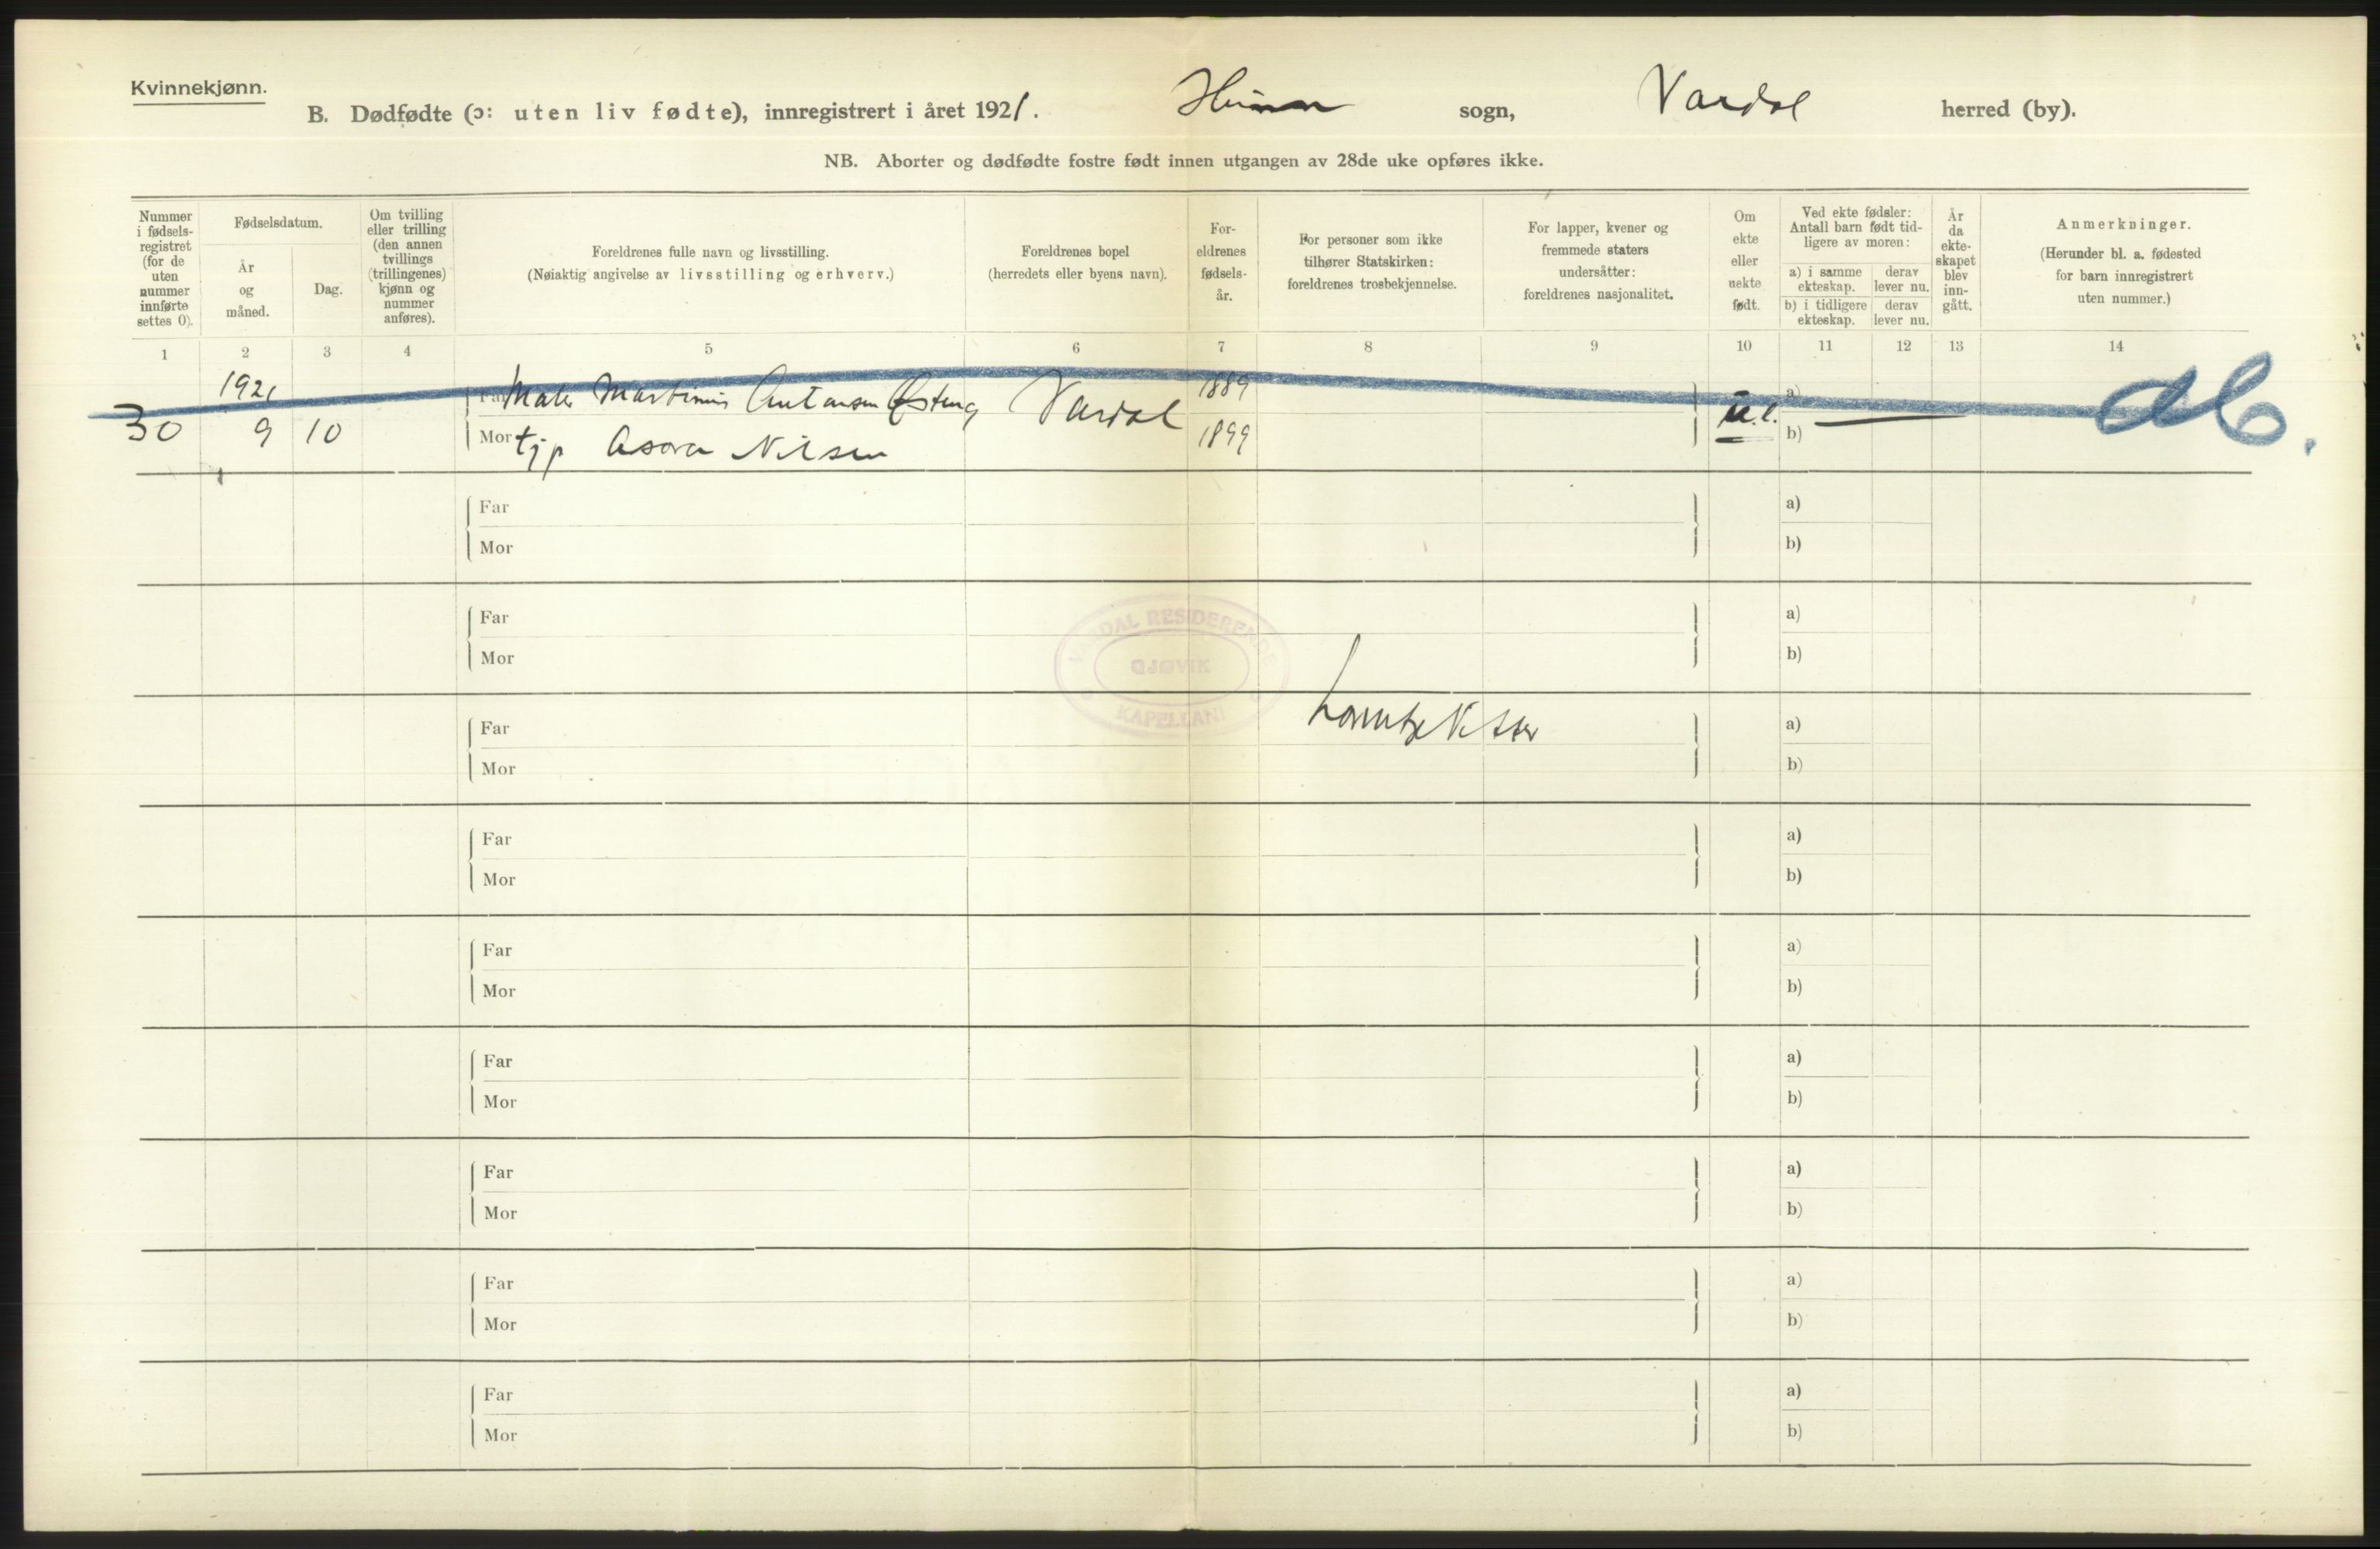 Kvinnekjønn.
B. Dødfødte (ɔ: uten liv fødte), innregistrert i året 1921. Hunn sogn, Vardal herred (by).
NB. Aborter og dødfødte fostre født innen utgangen av 28de uke opføres ikke.
Nummer i fødsels-registret (for de uten nummer innførte settes 0).
Fødselsdatum.
År og måned.
Dag.
Om tvilling eller trilling (den annen tvillings (trillingenes) kjønn og nummer anføres).
Foreldrenes fulle navn og livsstilling.
(Nøiaktig angivelse av livsstilling og erhverv.)
Foreldrenes bopel
(herredets eller byens navn).
For-eldrenes fødsels-år.
For personer som ikke tilhører Statskirken: foreldrenes trosbekjennelse.
For lapper, kvener og fremmede staters undersåtter: foreldrenes nasjonalitet.
Om ekte eller uekte født.
Ved ekte fødsler: Antall barn født tid-ligere av moren:
a) i samme ekteskap. derav lever nu.
b) i tidligere ekteskap. derav lever nu.
År da ekte-skapet blev inn-gått.
Anmerkninger.
(Herunder bl. a. fødested for barn innregistrert uten nummer.)
1 2 3 4 5 6 7 8 9 10 11 12 13 14
1921
Far Maler Martinus Antonsen Østeng Vardal 1889 u.e. a)
30 9 10 Mor tjp Asora Nilsen 1899 b)
Far a)
Mor b)
Far a)
Mor b)
VARDAL RESIDERENDE
GJØVIK
KAPELLANI
Far a)
Mor b)
Far a)
Mor b)
Far a)
Mor b)
Far a)
Mor b)
Far a)
Mor b)
Far a)
Mor b)
Far a)
Mor b)